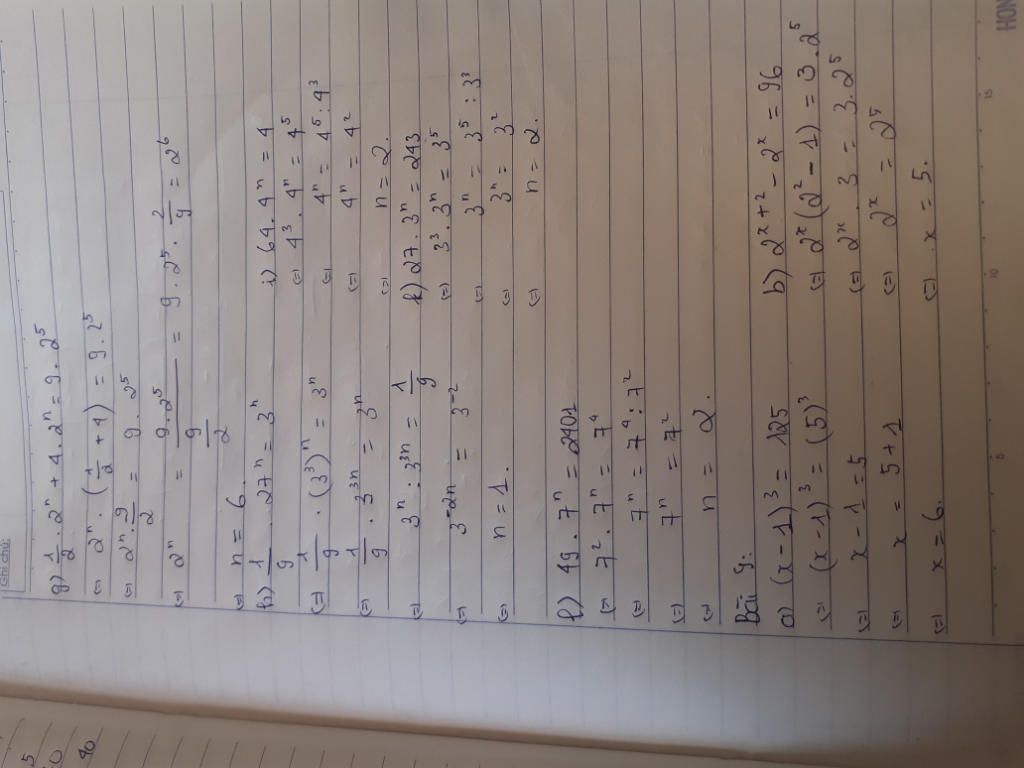 Ghi chú:
g) 1/2 . 2^n + 4 . 2^n = 9 . 2^5
(=) 2^n . (1/2 + 4) = 9 . 2^5
(=) 2^n . 9/2 = 9 . 2^5
(=) 2^n = (9 . 2^5)/(9/2) = 9 . 2^5 . 2/9 = 2^6
(=) n = 6.
h) 1/9 . 27^n = 3^n
(=) 1/9 . (3^3)^n = 3^n
(=) 1/9 . 3^3n = 3^n
(=) 3^n : 3^3n = 1/9
(=) 3^-2n = 3^-2
(=) n = 1.
i) 64 . 4^n = 4
(=) 4^3 . 4^n = 4^5
(=) 4^n = 4^5 : 4^3
(=) 4^n = 4^2
(=) n = 2.
k) 27 . 3^n = 243
(=) 3^3 . 3^n = 3^5
(=) 3^n = 3^5 : 3^3
(=) 3^n = 3^2
(=) n = 2.
l) 49 . 7^n = 2401
(= 7^2 . 7^n = 7^4
(=) 7^n = 7^4 : 7^2
(=) 7^n = 7^2
(=) n = 2.
Bài 9:
a) (x - 1)^3 = 125
(=) (x - 1)^3 = (5)^3
(=) x - 1 = 5
(=) x = 5 + 1
(=) x = 6.
b) 2^x+2 - 2^x = 96
(=) 2^x (2^2 - 1) = 3 . 2^5
(=) 2^x . 3 = 3 . 2^5
(=) 2^x = 2^5
(=) . x = 5.
5
10
15
HON
5
40